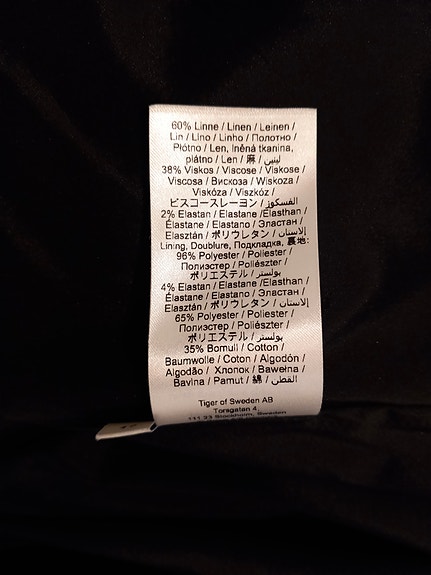 60% Linne / Linen / Leinen /
Lin / Lino / Linho / Полотно /
Płótno / Len, lněná tkanina,
plátno / Len / 麻 / لينين
38% Viskos / Viscose / Viskose /
Viscosa / Вискоза / Wiskoza /
Viskóza / Viszkóz /
ビスコースレーヨン / الفسكوز
2% Elastan / Elastane /Elasthan /
Élastane / Elastano / Эластан /
Elasztán / ポリウレタン / إلاستان
Lining, Doublure, Подкладка, 裏地:
96% Polyester / Poliester /
Полиэстер / Poliészter /
ポリエステル / بولستر
4% Elastan / Elastane /Elasthan /
Élastane / Elastano / Эластан /
Elasztán / ポリウレタン / إلاستان
65% Polyester / Poliester /
Полиэстер / Poliészter /
ポリエステル / بولستر
35% Bomull / Cotton /
Baumwolle / Coton / Algodón /
Algodão / Хлопок / Bawełna /
Bavlna / Pamut / 綿 / القطن
Tiger of Sweden AB
Torsgatan 4,
111 23 Stockholm, Sweden